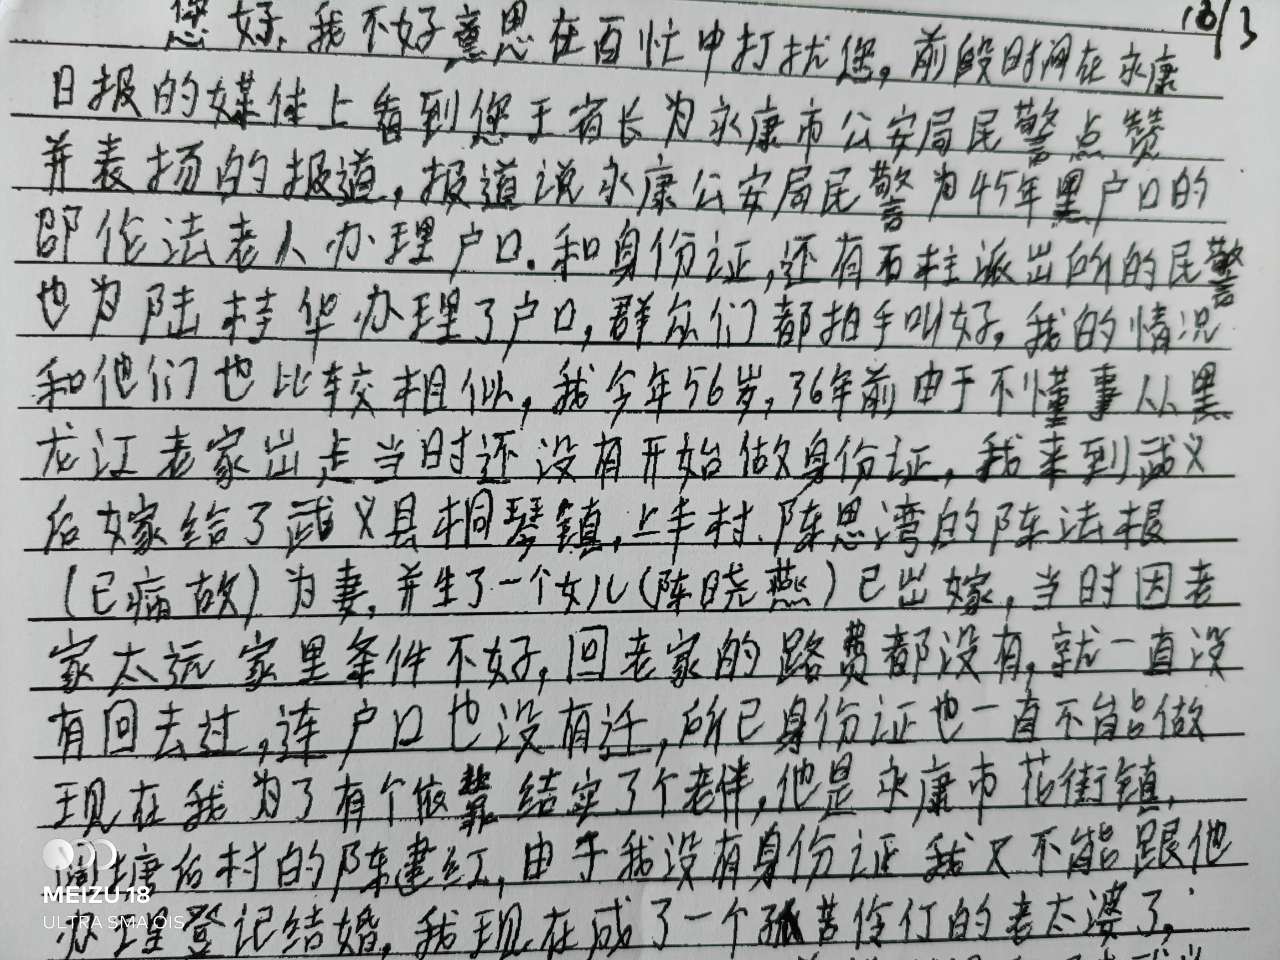 10/3
您好,我不好意思在百忙中打扰您,前段时间在永康
日报的媒体上看到您于省长为永康市公安局民警点赞
并表扬的报道,报道说永康公安局民警为45年黑户口的
邵作法老人办理户口.和身份证,还有石柱派出所的民警
也为陆桂华办理了户口,群众们都拍手叫好,我的情况
和他们也比较相似,我今年56岁,36年前由于不懂事从黑
龙江老家出走当时还没有开始做身份证,我来到武义
后嫁给了武义县桐琴镇,上丰村、陈思湾的陈法根
(已病故)为妻,并生了一个女儿(陈晓燕)已出嫁,当时因老
家太远家里条件不好,回老家的路费都没有,就一直没
有回去过,连户口也没有迁,所已身份证也一直不能做
现在我为了有个依靠结实了个老伴,他是永康市花街镇,
塘后村的陈建红,由于我没有身份证我又不能跟他
办理登记结婚,我现在成了一个孤苦伶仃的老太婆了,
MEIZU 18
ULTRA SMAOIS